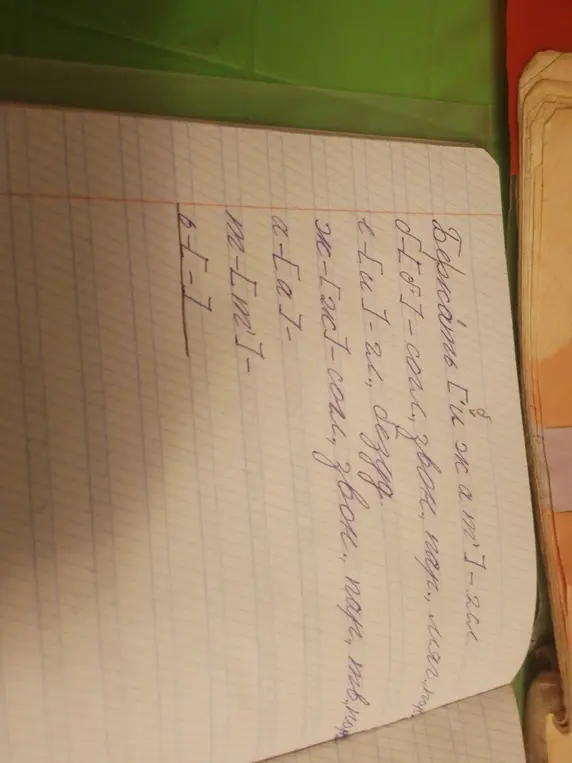 Бержать [б' и ж а т'] - гл.
б-[б'] - согл., звон., пар., мяг., пар
е-[и] - гл., безуд.
ж-[ж] - согл., звон., пар., тв., пар
а-[а] -
т-[т'] -
ь-[-]